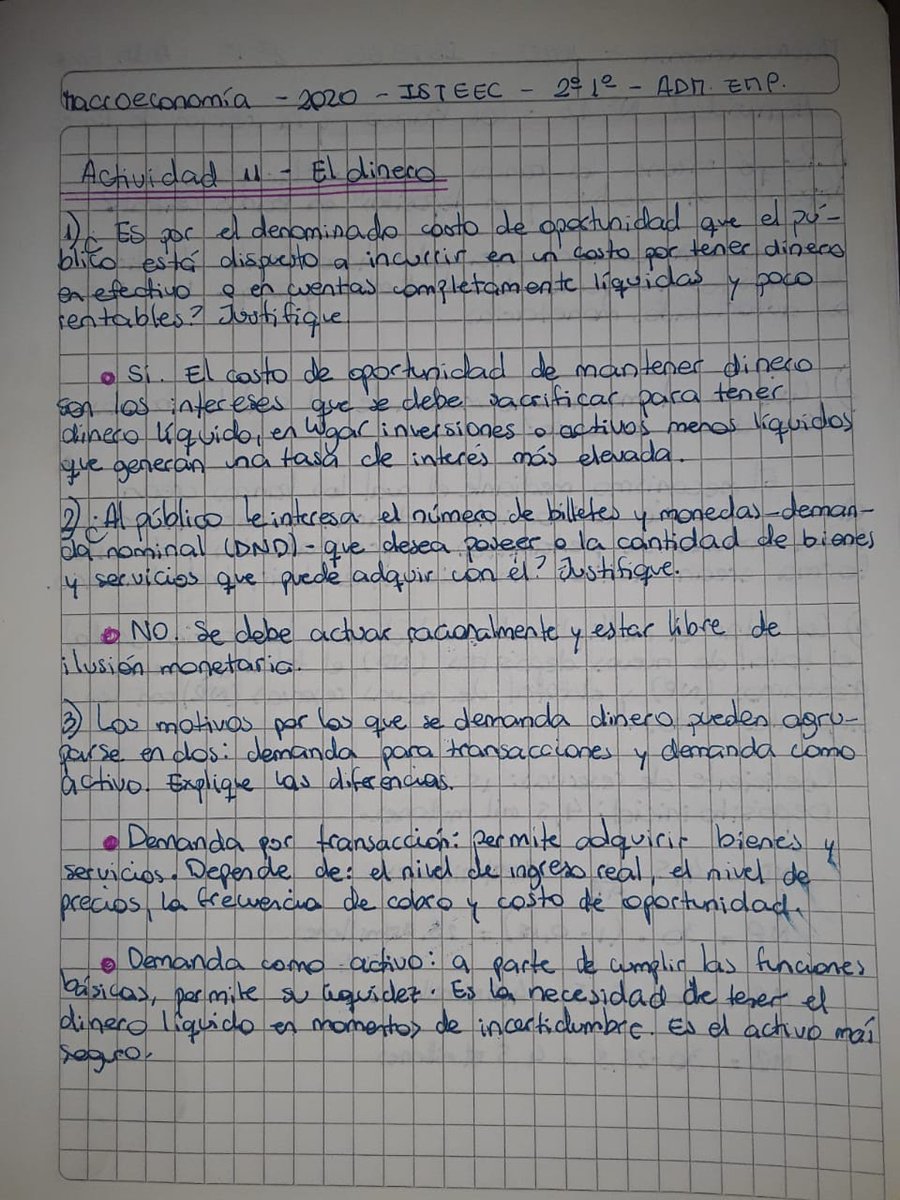 Macroeconomía - 2020 - ISTEEC - 2º 1º - ADM. EMP.
Actividad 11 - El dinero
1) ¿ Es por el denominado costo de oportunidad que el pú-
blico está dispuesto a incurrir en un costo por tener dinero
en efectivo o en cuentas completamente líquidas y poco
rentables? Justifique
• Si. El costo de oportunidad de mantener dinero
son los intereses que se debe sacrificar para tener
dinero líquido, en lugar inversiones o activos menos líquidos
que generan una tasa de interés más elevada.
2) ¿Al público le interesa el número de billetes y monedas-deman-
da nominal (DND)- que desea poseer o la cantidad de bienes
y servicios que puede adquir con él? Justifique.
• NO. Se debe actuar racionalmente y estar libre de
ilusión monetaria.
3) Los motivos por los que se demanda dinero pueden agru-
parse en dos: demanda para transacciones y demanda como
activo. Explique las diferencias.
• Demanda por transacción: permite adquirir bienes y
servicios. Depende de: el nivel de ingreso real, el nivel de
precios, la frecuencia de cobro y costo de oportunidad.
• Demanda como activo: a parte de cumplir las funciones
básicas, permite su liquidez. Es la necesidad de tener el
dinero líquido en momentos de incertidumbre. Es el activo más
seguro.